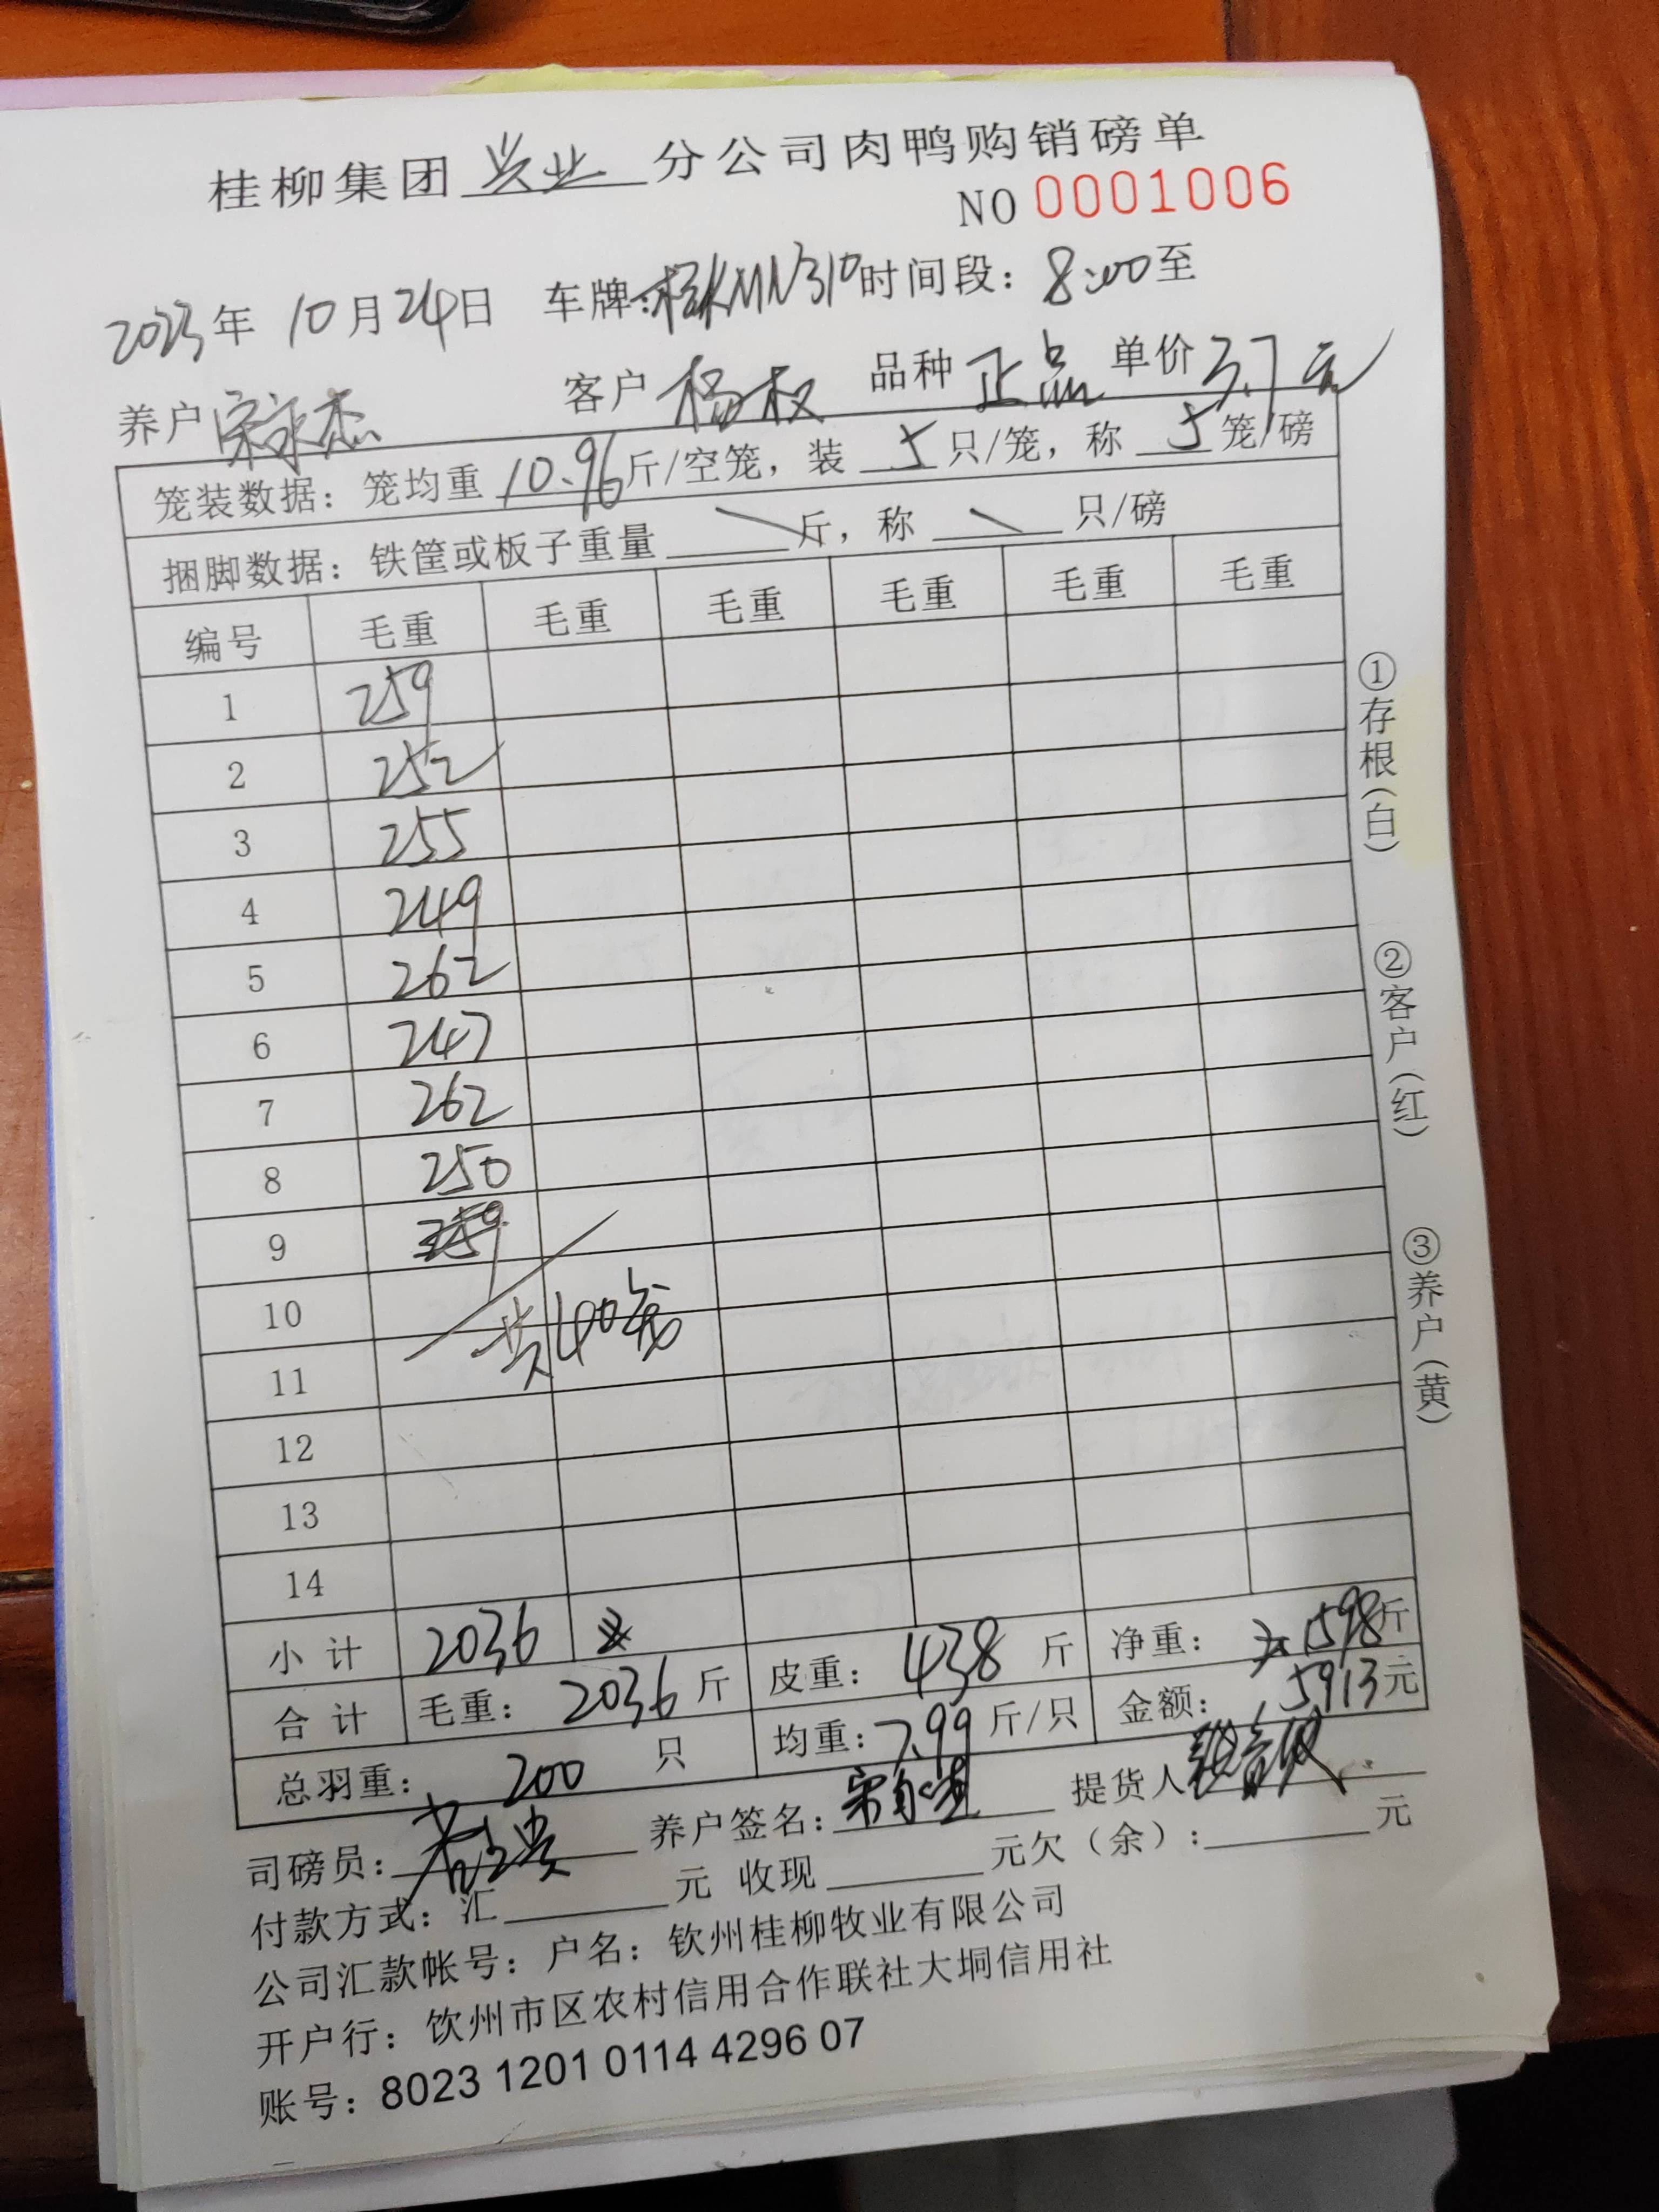 桂柳集团 兴业 分公司肉鸭购销磅单
NO 0001006
2023年 10月24日 车牌:桂KMN310 时间段: 8:00至
养户 宋永杰 客户 杨权 品种 正品 单价 3.7元
笼装数据: 笼均重 10.96 斤/空笼, 装 5 只/笼, 称 5 笼/磅
捆脚数据: 铁筐或板子重量 \ 斤, 称 \ 只/磅
编号 毛重 毛重 毛重 毛重 毛重 毛重
1 259
2 252
3 255
4 249
5 262
6 247
7 262
8 250
9
10
共40笼
11
12
13
14
小计 2036
合计 毛重: 2036 斤 皮重: 438 斤 净重: 1598斤
总羽重: 200 只 均重: 7.99 斤/只 金额: 5913元
司磅员: 养户签名: 提货人
付款方式: 汇 元 收现 元欠(余): 元
公司汇款帐号: 户名: 钦州桂柳牧业有限公司
开户行: 钦州市区农村信用合作联社大垌信用社
账号: 8023 1201 0114 4296 07
①存根(白)
②客户(红)
③养户(黄)